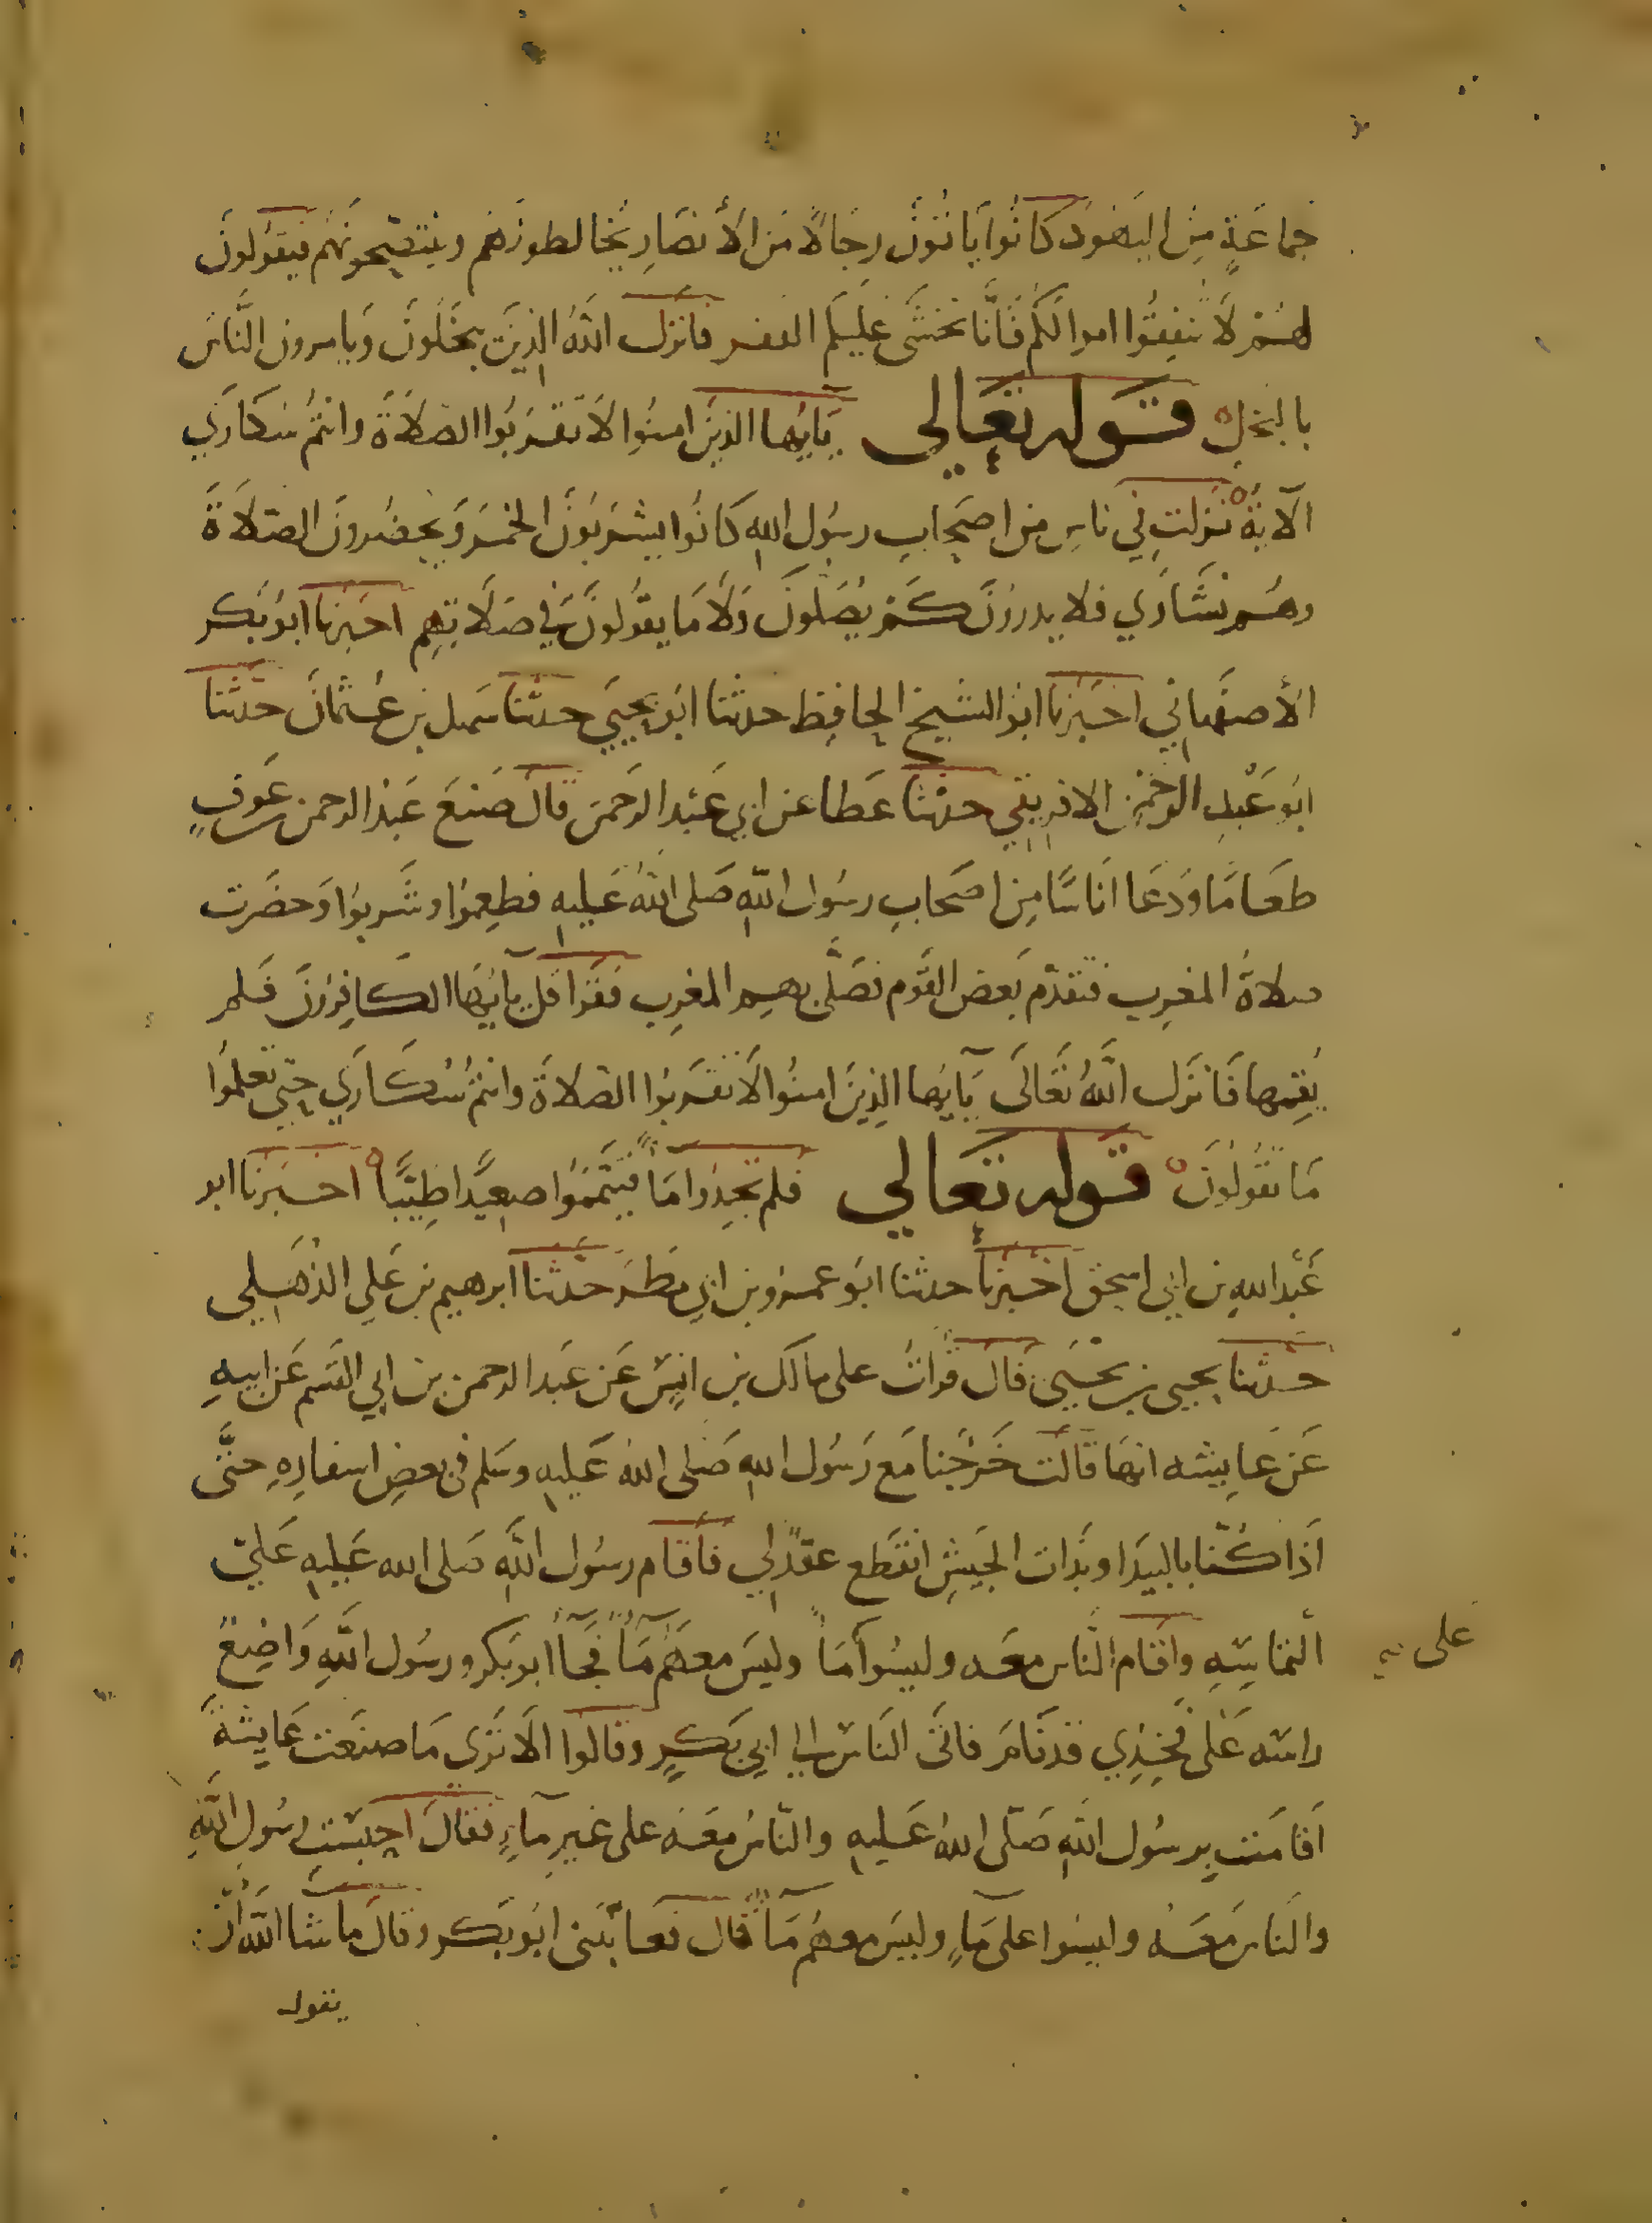 جماعَةٍ مِنَ اليَهُود كَانُوا يَاتُونَ رجَالًا مِنَ الأنصَارِ يُخالطونَهُم وينتصِحُونهُم فيقولونَ
لهُمْ لَا تنفِقُوا اموالكُم فَانَّا نخشَى عَليكُم الفقر فانزَل اللهُ الذينَ يبخَلُونَ وَيامرونَ النَّاسَ
بالبخلِ قَوله تعَالى يَايُّها الذينَ امنُوا لَا تقرَبُوا الصَّلَاةَ وانتُمْ سُكَارَي
الآيةُ نزلت في ناسٍ من اصحَاب رسُول الله كَانُوا يشرَبُونَ الخمرَ وَيحضُرونَ الصَّلَاةَ
وهُم نشَاوَي فلا يدرُونَ كَم يُصَلُّونَ وَلَا مَا يقُولُونَ في صَلَاتهِم اخبرنا ابُو بَكر
الأصفهاني اخبَرنا ابُو الشيخ الحافِظ حدثنا ابُو يحيَي حدثنا سَهل بن عُثمانَ حدثنا
ابُو عَبْدِ الرحمٰن الافريقي حدثنا عَطا عن ابي عَبْد الرَحمَن قالَ صَنعَ عَبْد الرحمن عَوفٍ
طعَامًا وَدَعَا انَاسًا مِن اصحَابِ رسُول اللَّهِ صَلى اللهُ عَليهِ فطعِمُوا وشَربُوا وَحضَرت
صلاةُ المغرِب فتقدّم بَعض القَوم فصَلَّى بهِم المغرِب فقَرَا قل يايُّهَا الكَافِرُونَ فَلم
يُقِمها فَانزَل اللَّهُ تعَالَى يَايُّها الذِينَ امنُوا لَا تقرَبُوا الصَّلاةَ وانتُمْ سُكَارَي حتي تعلمُوا
مَا تقُولُونَ قَوله تعَالي فلم تجِدُوا مَاً فتيَمَّمُوا صعِيدًا طيبًا اخبَرنا ابو
عَبْد اللهِ بن ابي اسحق اخبَرنا حدثنا ابُو عمرو بن ابي مطَر حدثنا ابرهيم بن عَلي الذهَلي
حدثنا يحيى بن يحيَى قالَ قراتُ على مالك بن انسٍ عَن عَبد الرحمن بن ابي القسم عَن ابيهِ
عَن عَايشه انهَا قَالت خَرجنا مَع رَسُول الله صَلى اللهُ عَليهِ وسَلم في بعضِ اسفارِهِ حتَّى
اذَا كُنّا بالبيدَا وبَذَات الجَيشِ انقطَع عقدٌ لي فاقَام رسُول اللَّهِ صَلى الله عَليهِ عَليَ
التماسِهِ وَاقَام النَّاس معَه وليسُوا مَاً وليسَ معَهُم مَاً فجَاَ ابو بَكر ورسُول اللَّهِ وَاضِعٌ
على
راسَه عَلى فَخِذِي قد نَامَ فاتَى النَاسُ الي ابي بَكرٍ وقالوا الَا ترَى مَا صنعَت عَايشةُ
اقَامَت برسُول اللَّهِ صَلّى اللهُ عَليهِ والنّاسُ معَهُ على غيرِ مَآءٍ فقالَ احبستِ رسُولَ اللَّهِ
والنَاس مَعَهُ وليسُوا على مَاءٍ وليسَ معهُم مَاً قال فعَاتبَني ابُو بَكر وقالَ ما شا اللَّه ان
يقول